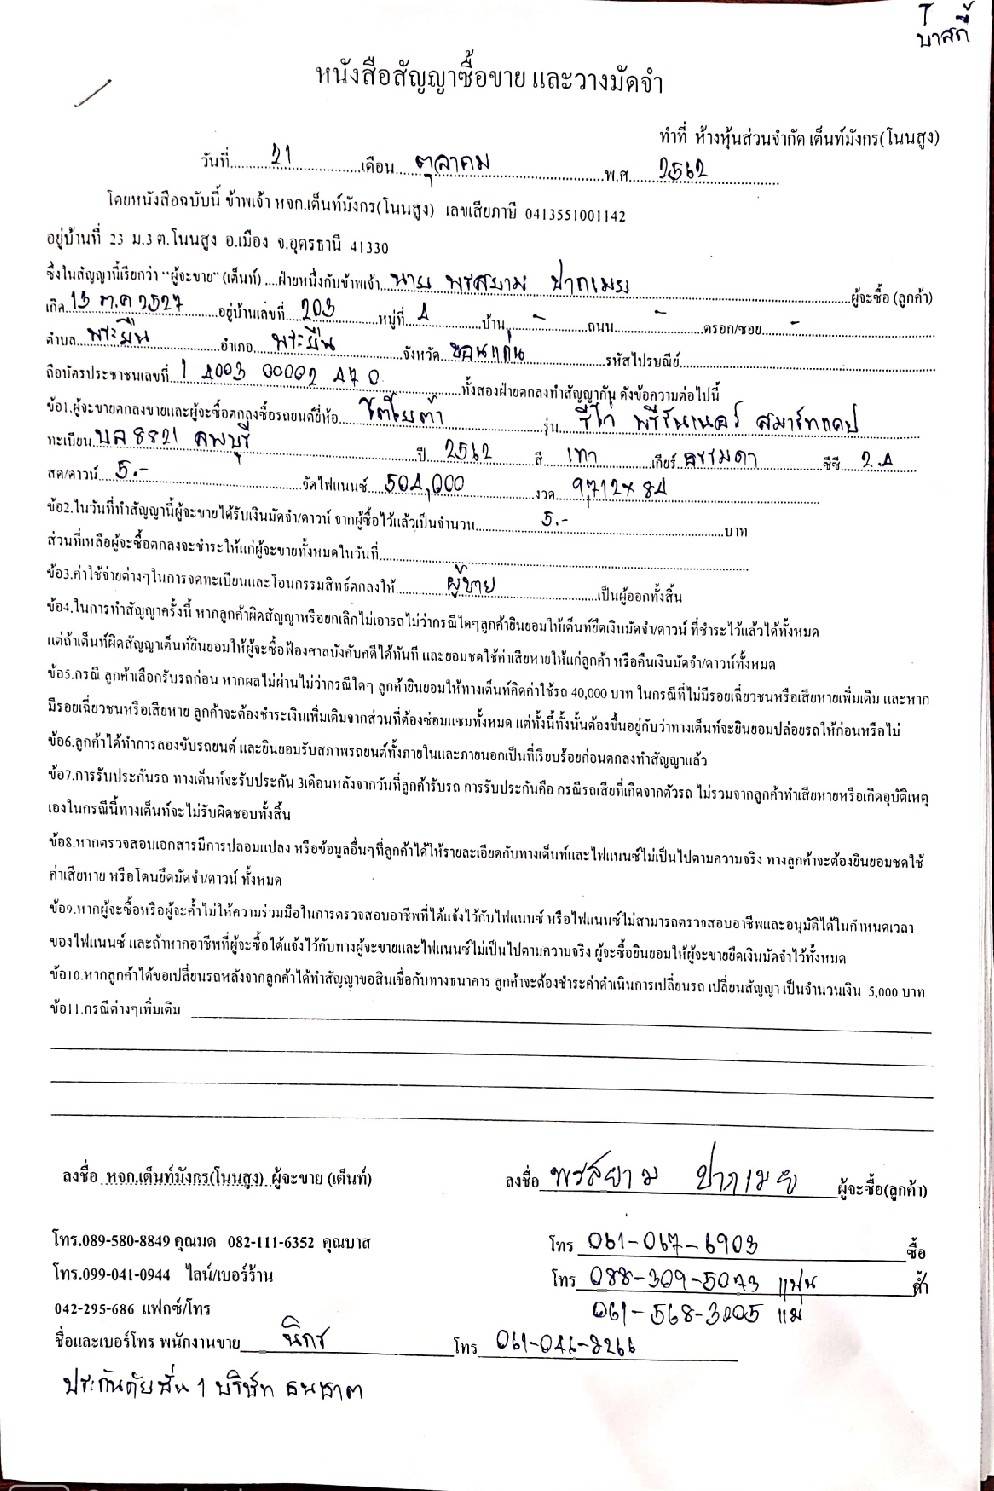 บาสกี้
หนังสือสัญญาซื้อขาย และวางมัดจำ
ทำที่ ห้างหุ้นส่วนจำกัด เต็นท์มังกร(โนนสูง)
วันที่ 21 เดือน ตุลาคม พ.ศ. 2562
โดยหนังสือฉบับนี้ ข้าพเจ้า หจก.เต็นท์มังกร(โนนสูง) เลขเสียภาษี 0413551001142
อยู่บ้านที่ 23 ม.3 ต.โนนสูง อ.เมือง จ.อุดรธานี 41330
ซึ่งในสัญญานี้เรียกว่า "ผู้จะขาย" (เต็นท์) ....ฝ่ายหนึ่งกับข้าพเจ้า นาย พรสยาม ปาก ผู้จะซื้อ (ลูกค้า)
เกิด 13 ต.ค 2527 อยู่บ้านเลขที่ 203 หมู่ที่ 4 บ้าน - ถนน - ตรอก/ซอย -
ตำบล พระยืน อำเภอ พระยืน จังหวัด ขอนแก่น รหัสไปรษณีย์
ถือบัตรประชาชนเลขที่ 1 4003 00002 47 0 ทั้งสองฝ่ายตกลงทำสัญญากัน ดังข้อความต่อไปนี้
ข้อ1.ผู้จะขายตกลงขายและผู้จะซื้อตกลงซื้อรถยนต์ยี่ห้อ โตโยต้า รุ่น รีโว่ พรีรันเนอร์ สมาร์ทแคป
ทะเบียน บล 8821 ลพบุรี ปี 2562 สี เทา เกียร์ ธรรมดา ซีซี 2.4
สด/ดาวน์ 5.- จัดไฟแนนซ์ 504,000 งวด 9,712 x 84
ข้อ2.ในวันที่ทำสัญญานี้ผู้จะขายได้รับเงินมัดจำ/ดาวน์ จากผู้ซื้อไว้แล้วเป็นจำนวน 5.- บาท
ส่วนที่เหลือผู้จะซื้อตกลงจะชำระให้แก่ผู้จะขายทั้งหมดในวันที่
ข้อ3.ค่าใช้จ่ายต่างๆในการจดทะเบียนและโอนกรรมสิทธิ์ตกลงให้ ผู้ขาย เป็นผู้ออกทั้งสิ้น
ข้อ4.ในการทำสัญญาครั้งนี้ หากลูกค้าผิดสัญญาหรือยกเลิกไม่เอารถ ไม่ว่ากรณีใดๆลูกค้ายินยอมให้เต็นท์ยึดเงินมัดจำ/ดาวน์ ที่ชำระไว้แล้วได้ทั้งหมด
แต่ถ้าเต็นท์ผิดสัญญาเต็นท์ยินยอมให้ผู้จะซื้อฟ้องศาลบังคับคดีได้ทันที และยอมชดใช้ค่าเสียหายให้แก่ลูกค้า หรือคืนเงินมัดจำ/ดาวน์ทั้งหมด
ข้อ5.กรณี ลูกค้าเลือกรับรถก่อน หากผลไม่ผ่านไม่ว่ากรณีใดๆ ลูกค้ายินยอมให้ทางเต็นท์คิดค่าใช้รถ 40,000 บาท ในกรณีที่ไม่มีรอยเฉี่ยวชนหรือเสียหายเพิ่มเติม และหาก
มีรอยเฉี่ยวชนหรือเสียหาย ลูกค้าจะต้องชำระเงินเพิ่มเติมจากส่วนที่ต้องซ่อมแซมทั้งหมด แต่ทั้งนี้ทั้งนั้นต้องขึ้นอยู่กับว่าทางเต็นท์จะยินยอมปล่อยรถให้ก่อนหรือไม่
ข้อ6.ลูกค้าได้ทำการลองขับรถยนต์ และยินยอมรับสภาพรถยนต์ทั้งภายในและภายนอกเป็นที่เรียบร้อยก่อนตกลงทำสัญญาแล้ว
ข้อ7.การรับประกันรถ ทางเต็นท์จะรับประกัน 3เดือนหลังจากวันที่ลูกค้ารับรถ การรับประกันคือ กรณีรถเสียที่เกิดจากตัวรถ ไม่รวมจากลูกค้าทำเสียหายหรือเกิดอุบัติเหตุ
เองในกรณีนี้ทางเต็นท์จะไม่รับผิดชอบทั้งสิ้น
ข้อ8.หากตรวจสอบเอกสารมีการปลอมแปลง หรือข้อมูลอื่นๆที่ลูกค้าได้ให้รายละเอียดกับทางเต็นท์และไฟแนนซ์ไม่เป็นไปตามความจริง ทางลูกค้าจะต้องยินยอมชดใช้
ค่าเสียหาย หรือโดนยึดมัดจำ/ดาวน์ ทั้งหมด
ข้อ9.หากผู้จะซื้อหรือผู้จะค้ำไม่ให้ความร่วมมือในการตรวจสอบอาชีพที่ได้แจ้งไว้กับไฟแนนซ์ หรือไฟแนนซ์ไม่สามารถตรวจสอบอาชีพและอนุมัติได้ในกำหนดเวลา
ของไฟแนนซ์ และถ้าหากอาชีพที่ผู้จะซื้อได้แจ้งไว้กับทางผู้จะขายและไฟแนนซ์ไม่เป็นไปตามความจริง ผู้จะซื้อยินยอมให้ผู้จะขายยึดเงินมัดจำไว้ทั้งหมด
ข้อ10.หากลูกค้าได้ขอเปลี่ยนรถหลังจากลูกค้าได้ทำสัญญาขอสินเชื่อกับทางธนาคาร ลูกค้าจะต้องชำระค่าดำเนินการเปลี่ยนรถ เปลี่ยนสัญญา เป็นจำนวนเงิน 5,000 บาท
ข้อ11.กรณีต่างๆเพิ่มเติม
ลงชื่อ หจก.เต็นท์มังกร(โนนสูง) ผู้จะขาย (เต็นท์) ลงชื่อ พรสยาม ผู้จะซื้อ(ลูกค้า)
โทร.089-580-8849 คุณมด 082-111-6352 คุณบาส โทร 061-067-6903 ซื้อ
โทร.099-041-0944 ไลน์/เบอร์ร้าน โทร 088-309-5073 แฟน ค้ำ
042-295-686 แฟกซ์/โทร 061-568-3005 แม่
ชื่อและเบอร์โทร พนักงานขาย นิกร โทร 061-046-8266
ประกันภัยชั้น 1 บริษัท ธนชาต